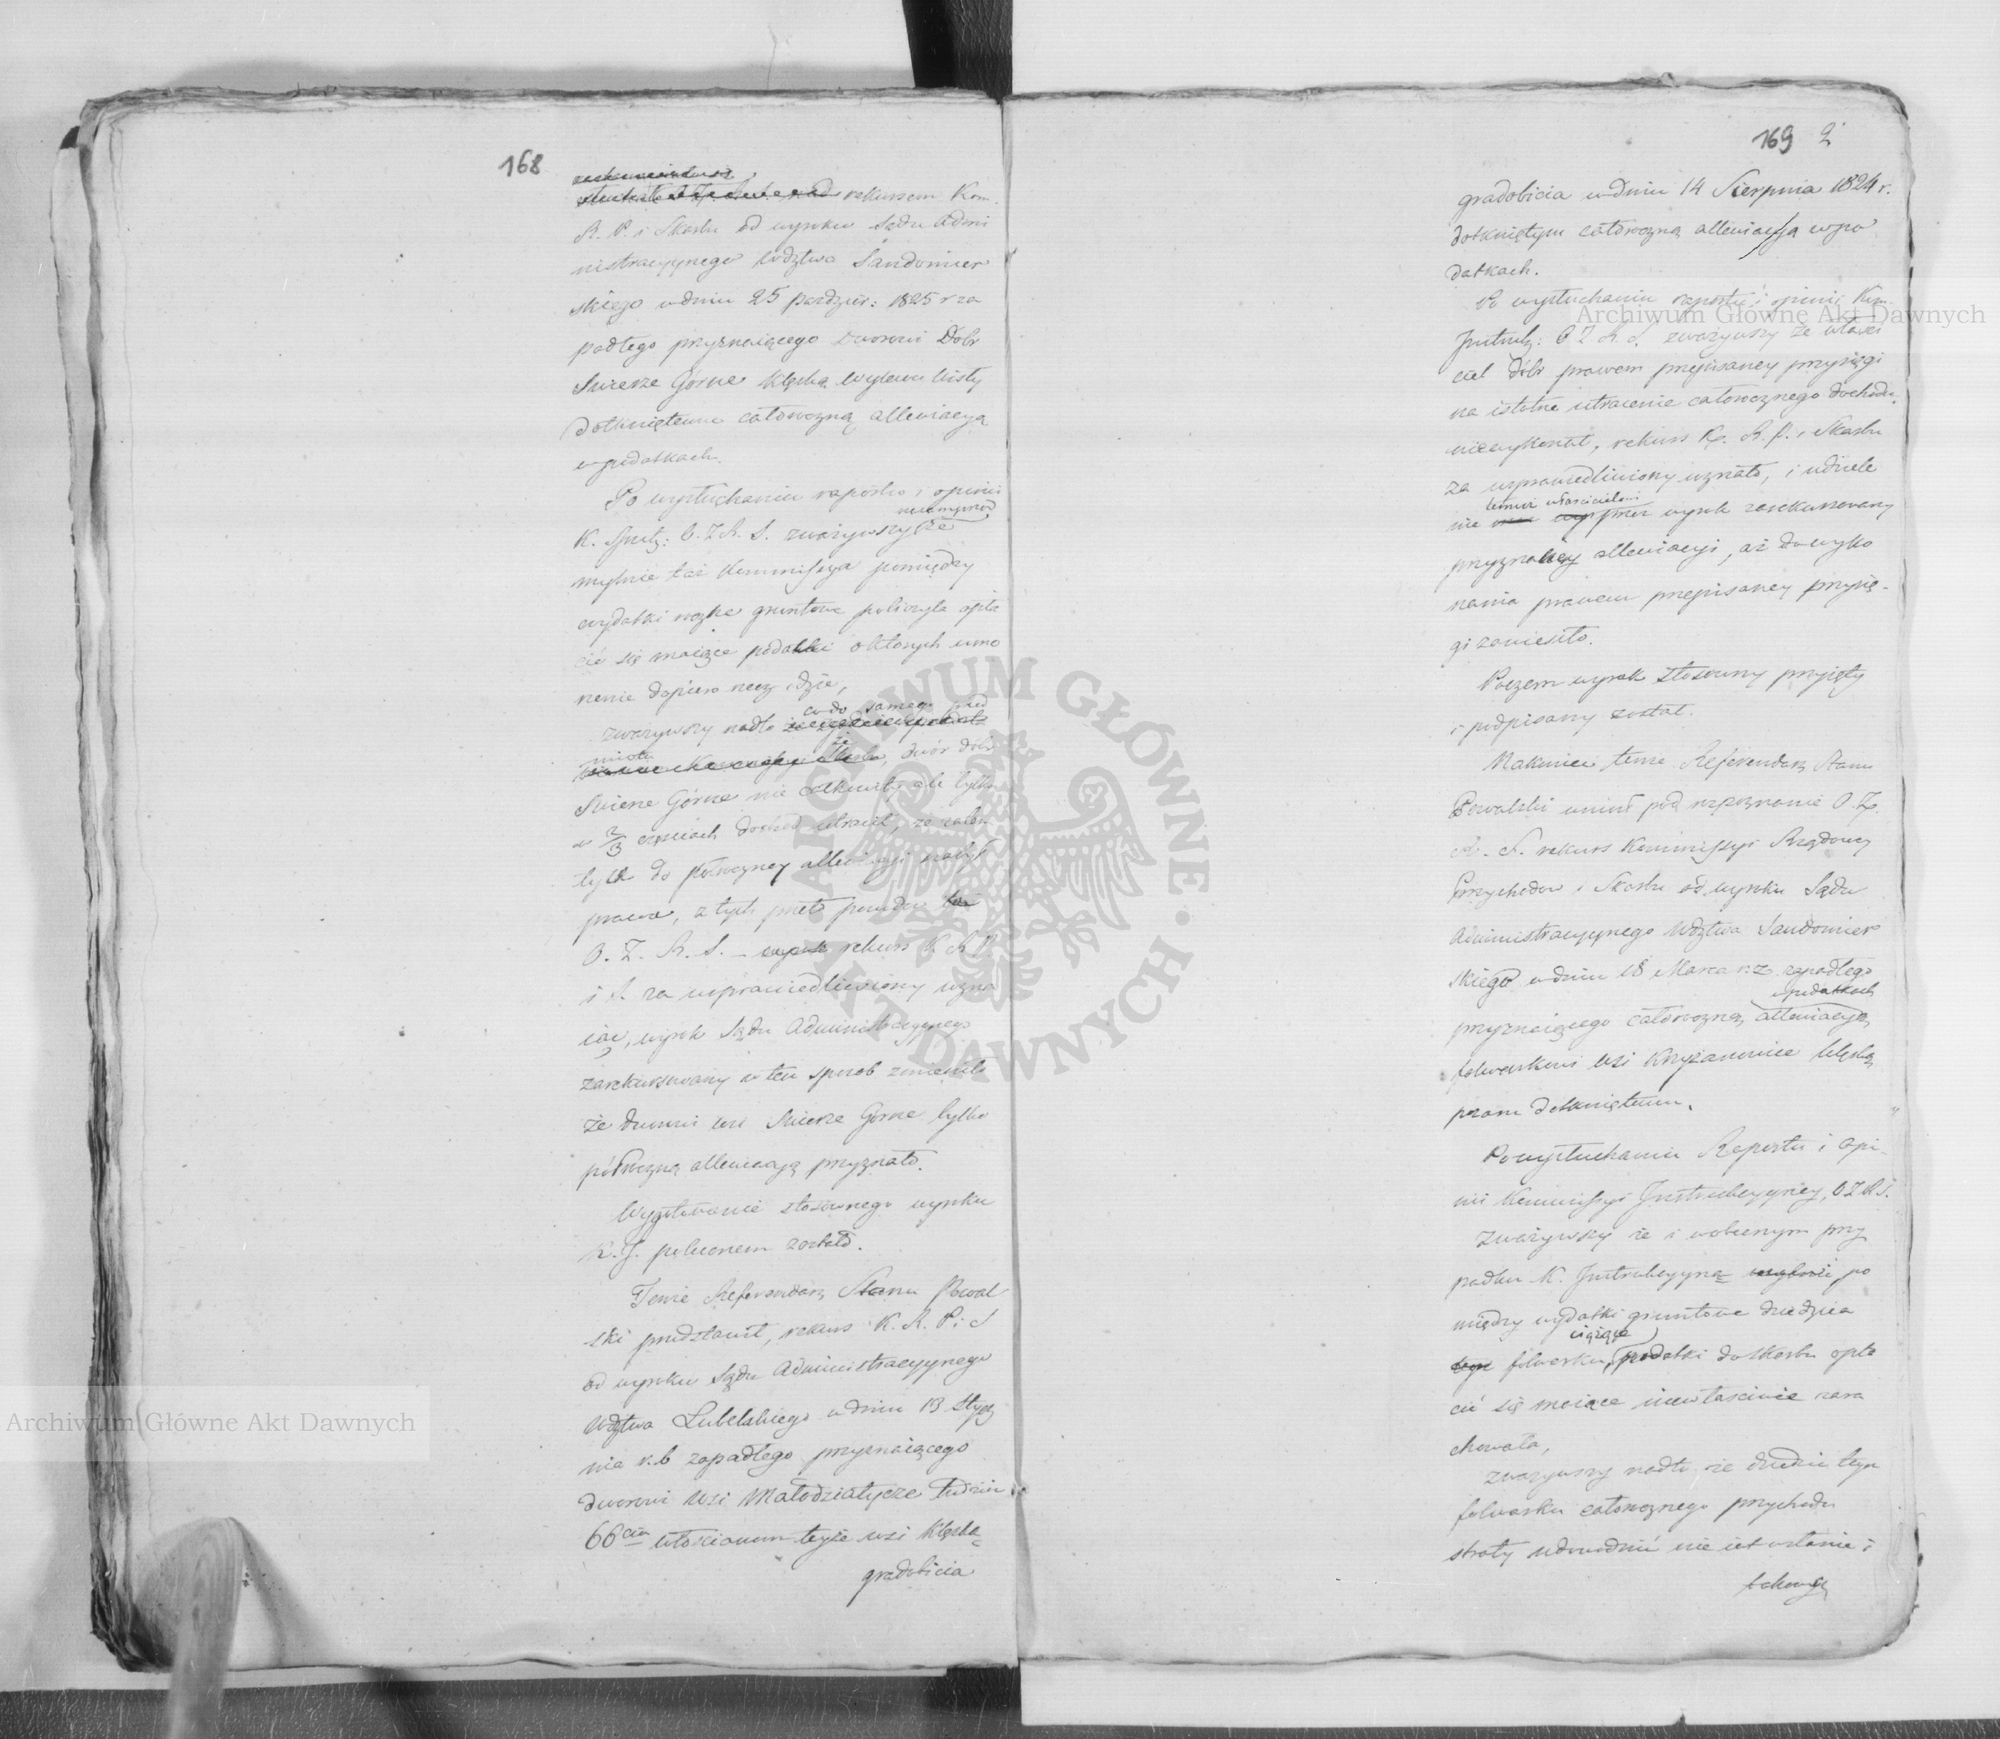 168
rekursem Kom.
R. P. i Skarbu od wyroku Sądu Admi
nistracyynego Wdztwa Sandomier
skiego w dniu 25 Paździer: 1825 r za
padłego przyznaiącego Dworowi Dóbr
Świerze Górne klęską wylewu Wisły
dotkniętemu całoroczną allewiacyą
w podatkach.
Po wysłuchaniu raportu i opinii
K. Instr: O. Z. R. S. zważywszy że
mylnie taż Kommissya pomiędzy
wydatki gruntowe policzyła opła
cić się maiące podatki o których umo
rzenie dopiero rzecz idzie,
co do samego przed
zważywszy nadto
miotu że
dwór dóbr
Świerze Górne nie całkowity ale tylko
w 2/3 częściach dochód utracił, że zatem
tylko do półroczney allewiacyi nabył
prawa, z tych przeto powodów
O. Z. R. S. – rekurs K. R. P.
i S. za usprawiedliwiony uzna
iąc, wyrok Sądu Administracyynego
zarekursowany w ten sposób zmieniło
że dworowi wsi Świerze Górne tylko
półroczną allewiacyą przyznało.
Wygotowanie stosownego wyroku
K. J. poleconem zostało.
Tenże Referendarz Stanu Kowal
ski przedstawił, rekurs K. R. P. i S
od wyroku Sądu Administracyynego
Wdztwa Lubelskiego w dniu 13 Stycz
nia r. b zapadłego przyznaiącego
dworowi wsi Małodziatycze tudzież
66ciu włościanom teyże wsi klęską
gradobicia
169 2
gradobicia w dniu 14 Sierpnia 1824 r.
dotkniętym całoroczną allewiacyą w po
datkach.
Po wysłuchaniu raportu i opinii Kom.
Instrukc: O Z R. S. zważywszy że właści
ciel dóbr prawem przepisaney przysięgi
na istotne utracenie całorocznego dochodu
niewykonał, rekurs K. R. P. i Skarbu
za usprawiedliwiony uznało, i udziele
temuż właścicielowi
nie przez wyrok zarekursowany
przyznaney allewiacyi, aż do wyko
nania prawem przepisaney przysię-
gi zawiesiło.
Poczem wyrok stosowny przyięty
i podpisany został.
Nakoniec tenże Referendarz Stanu
Kowalski wniósł pod rozpoznanie O. Z.
R. S. rekurs Kommissyi Rządowey
Przychodów i Skarbu od wyroku Sądu
Administracyynego Wdztwa Sandomier
skiego w dniu 18 Marca r. z. zapadłego
w podatkach
przyznaiącego całoroczną allewiacyą
folwarkowi wsi Krzyżanowice klęską
dotkniętemu.
Po wysłuchaniu Raportu i opi-
nii Kommissyi Instrukcyyney, O Z R S.
zważywszy że i w obecnym przy
padku K. Instrukcyyna po
między wydatki gruntowe dziedzica
ciążące
folwarku, podatki do Skarbu opła
cić się maiące niewłaściwie zara
chowała,
zważywszy nadto że dziedzic tego
folwarku całorocznego przychodu
straty udowodnić nie iest w stanie i